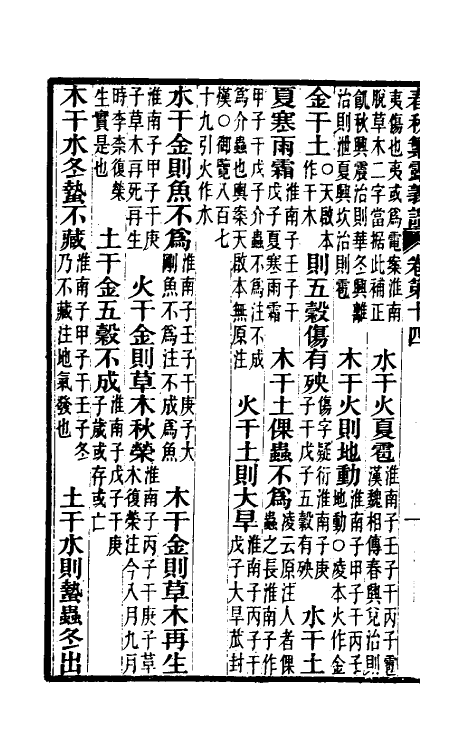 春秋繁露義證 卷第十四 一
夷傷也夷或爲電案淮南脫草木二字當据此補正 水干火夏雹淮南子壬子干丙子雹漢魏相傳春興兌治則
飢秋興震治則華冬興離治則泄夏興坎治則雹 木干火則地動淮南子甲子干丙子地動○凌本火作金
金干土○天啟本作干木則五穀傷有殃傷字疑衍淮南子庚子干戊子五穀有殃 水干土
夏寒雨霜淮南子壬子干戊子夏寒雨霜 木干土倮蟲不爲凌云原注人者倮蟲之長淮南子作
甲子干戊子介蟲不爲注不成爲介蟲也輿案天啟本無原注 火干土則大旱淮南子丙子干戊子大旱苽封
熯○御覽八百七十九引火作水
水干金則魚不爲淮南子壬子干庚子大剛魚不爲注不成爲魚 木干金則草木再生
淮南子甲子干庚子草木再死再生 火干金則草木秋榮淮南子丙子干庚子草木復榮注今八月九月
時李柰復榮生實是也 土干金五穀不成淮南子戊子干庚子歲或存或亡
木干水冬蟄不藏淮南子甲子干壬子冬乃不藏注地氣發也 土干水則蟄蟲冬出